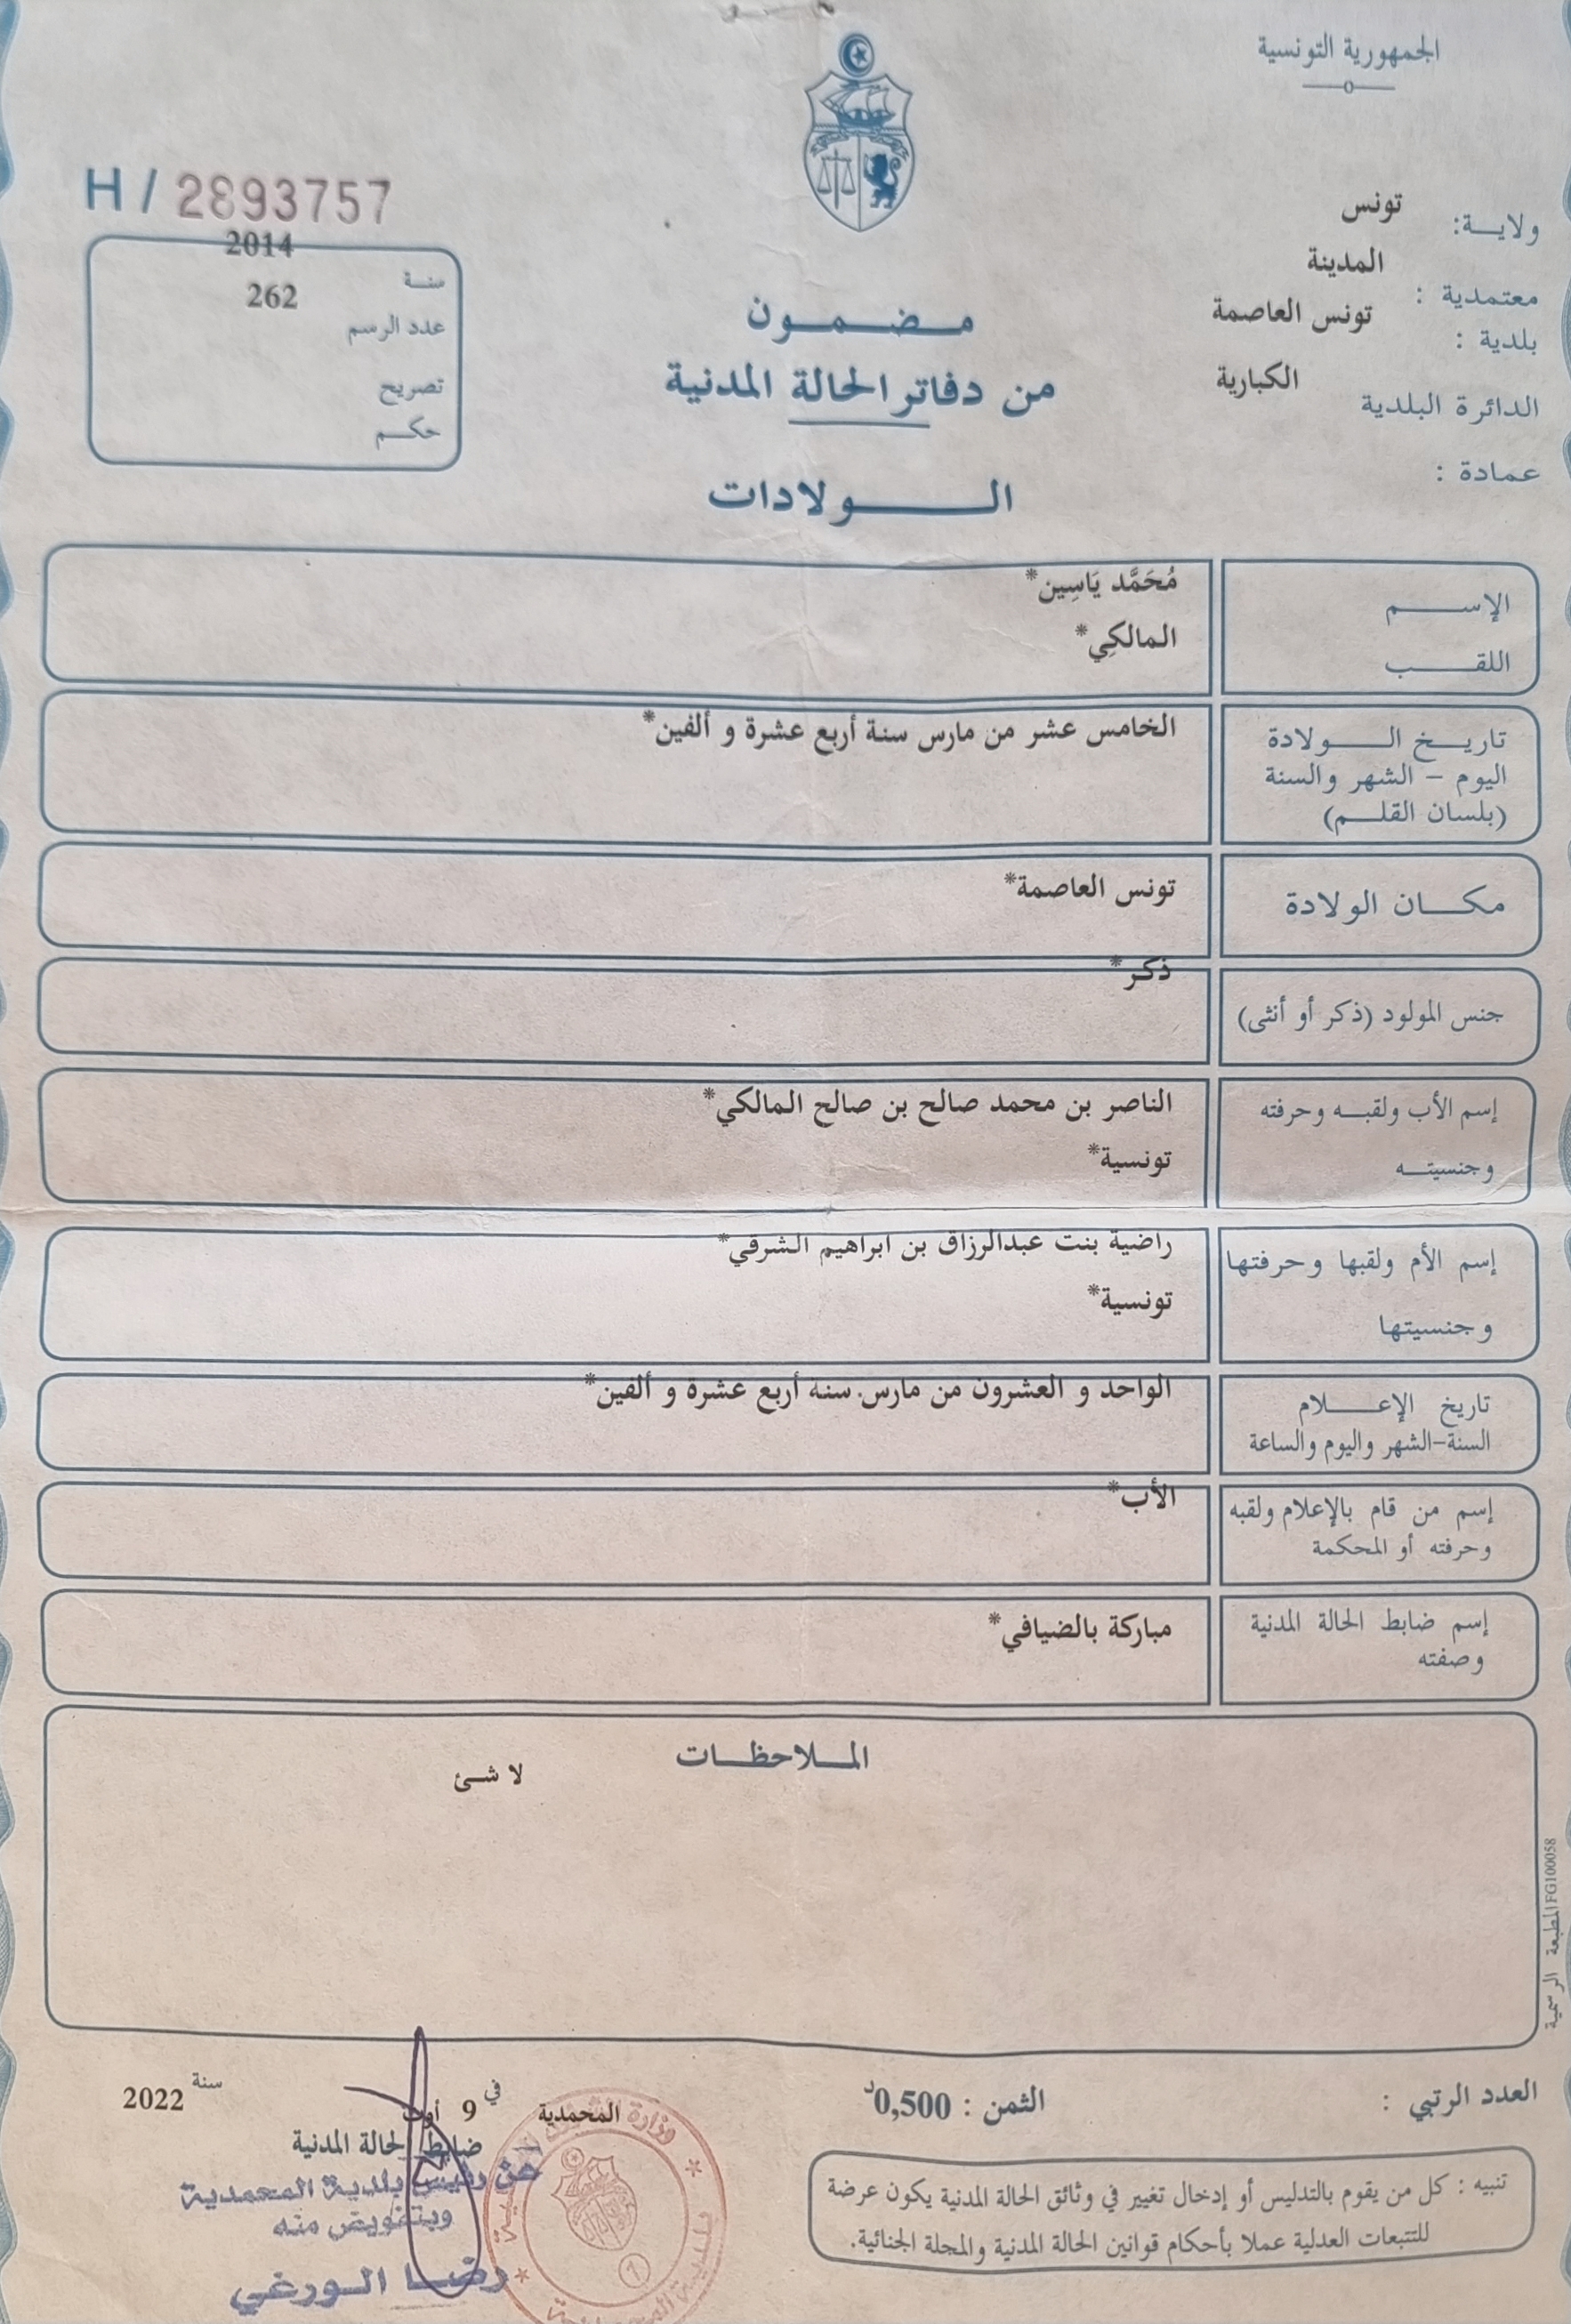 الجمهورية التونسية
H / 2893757
ولاية: تونس
معتمدية : المدينة
بلدية : تونس العاصمة
الدائرة البلدية الكبارية
عمادة :
سنة 2014
عدد الرسم 262
تصريح
حكم
مضمون
من دفاتر الحالة المدنية
الولادات
الإسم مُحَمَّد يَاسِين*
اللقب المالكِي*
تاريخ الولادة الخامس عشر من مارس سنة أربع عشرة و ألفين*
اليوم - الشهر والسنة
(بلسان القلم)
مكان الولادة تونس العاصمة*
جنس المولود (ذكر أو أنثى) ذكر*
إسم الأب ولقبه وحرفته الناصر بن محمد صالح بن صالح المالكي*
وجنسيته تونسية*
إسم الأم ولقبها وحرفتها راضية بنت عبدالرزاق بن ابراهيم الشرفي*
وجنسيتها تونسية*
تاريخ الإعلام الواحد و العشرون من مارس سنة أربع عشرة و ألفين*
السنة-الشهر واليوم والساعة
إسم من قام بالإعلام ولقبه الأب*
وحرفته أو المحكمة
إسم ضابط الحالة المدنية مباركة بالضيافي*
وصفته
الملاحظات
لا شئ
المطبعة الرسمية FG100058
العدد الرتبي :
الثمن : 0,500د
المحمدية في 9 أوت سنة 2022
ضابط الحالة المدنية
عن رئيس بلدية المحمدية
وبتفويض منه
رضا الورغي
تنبيه : كل من يقوم بالتدليس أو إدخال تغيير في وثائق الحالة المدنية يكون عرضة
للتتبعات العدلية عملا بأحكام قوانين الحالة المدنية والمجلة الجنائية.